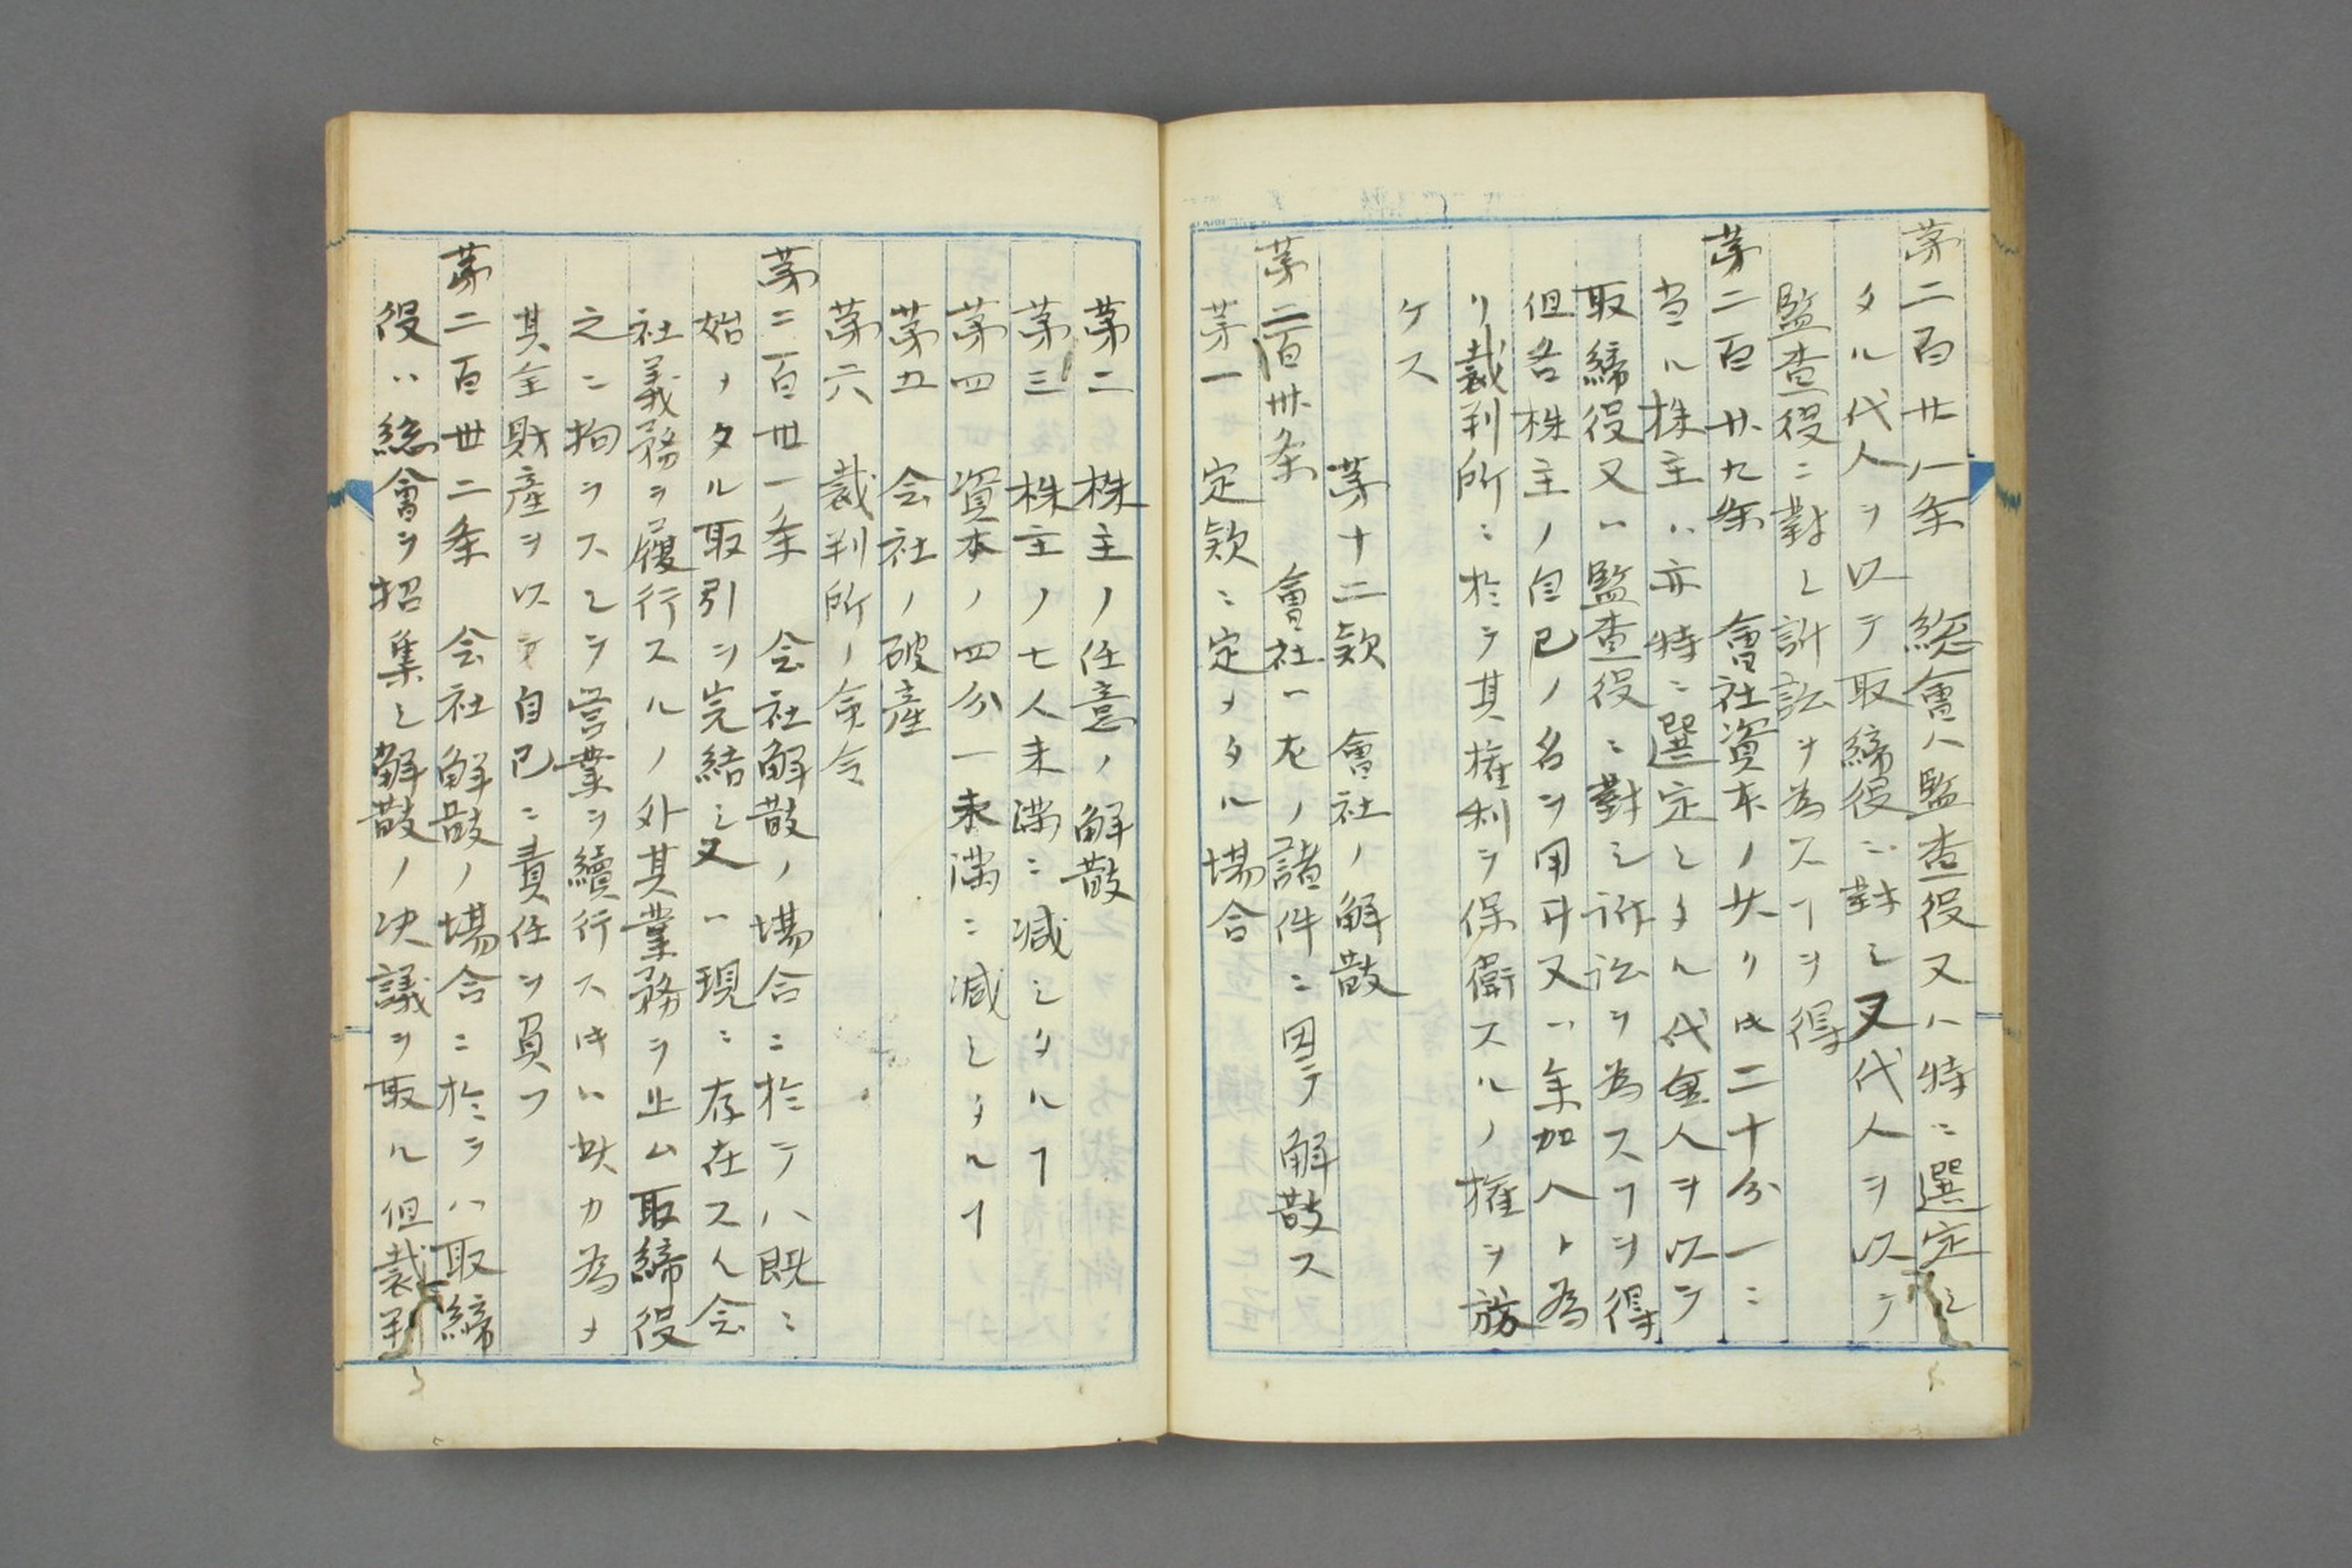 第二百廿八条　総會ハ監査役又ハ特ニ選定シ
タル代人ヲ以テ取締役ニ對シ又代人ヲ以テ
監査役ニ對シ訴訟ヲ為スヿヲ得
第二百廿九条　會社資本ノ少クトモ二十分一ニ
当ル株主ハ亦特ニ選定シタル代人ヲ以テ
取締役又ハ監査役ニ對シ訴訟ヲ為スヿヲ得
但各株主ノ自己ノ名ヲ用井又ハ参加人ト為
リ裁判所ニ於テ其権利ヲ保衛スルノ権ヲ妨
ケス
第十二款　會社ノ解散
第二百卅条　會社ハ左ノ諸件ニ因テ解散ス
第一　定款ニ定メタル場合
第二　株主ノ任意ノ解散
第三　株主ノ七人未満ニ減シタルヿ
第四　資本ノ四分一未満ニ減シタルヿ
第五　会社ノ破産
第六　裁判所ノ命令
第二百卅一条　会社解散ノ場合ニ於テハ既ニ
始メタル取引ヲ完結シ又ハ現ニ存在スル会
社義務ヲ履行スルノ外其業務ヲ止ム取締役
之ニ拘ラスシテ営業ヲ續行スルトキハ此カ為メ
其全財産ヲ以テ自己ニ責任ヲ負フ
第二百卅二条　会社解散ノ場合ニ於テハ取締
役ハ総會ヲ招集シ解散ノ决議ヲ取ル但裁判